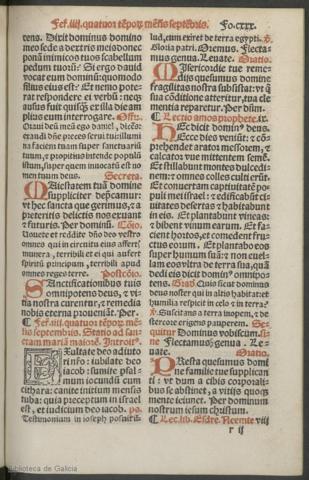 Fer.iiij.quatuor tẽpoꝝ mẽsis septẽbris. Fo.cxxx.
tens. Dixit dominus domino
meo sede a dextris meis donec
ponã inimicos tuos scabellum
pedum tuorũ? Si ergo dauid
vocat eum dominũ: quomodo
filius eius est? Et nemo pote-
rat respondere ei verbũ: neqꝫ
ausus fuit quisqͣ̃ ex illa die am
plius eum interrogare. Offr.
Oraui deũ meũ ego daniel, dicẽs:
exaudi dñe preces serui tui: illumi
na faciem tuam super sanctuariũ
tuum, ⁊ propitius intende populũ
istum, super quem inuocatũ est no
men tuum deus. Secreta.
Maiestatem tuã domine
suppliciter dep̃camur:
vt hec sancta que gerimus, ⁊ a
preteritis delictis nos exuant
⁊ futuris. Per dominũ. Cõio.
Uouete et reddite dño deo vestro
omnes qui in circuitu eius affertis
munera, terribili et ei qui aufert
spiritũ principum, terribili apud
omnes reges terre. Postcõio.
Sanctificationibus tuis
omnipotens deus, ⁊ vi-
tia nostra curentur, ⁊ remedia
nobis eterna proueniãt. Per.
¶ Fer.iiij.quatuor tẽpoꝝ mẽ
sis septembris. Statio ad san
ctam mariã maiorẽ. Introitꝰ.
Exultate deo adiuto
ri nro: iubilate deo
iacob: sumite psal-
mum iocundũ cum
cithara: canite initium mensis
tuba: quia preceptum in israel
est, et iudicium deo iacob. ps.
Testimonium in ioseph posuit
lud, cum exiret de terra egypti. ℣.
Gloria patri. Oremus. Flecta-
mus genua. Leuate. Oratio.
Misericordie tue reme-
dijs quesumus domine
fragilitas nostra subsistat: vt q̃
sua cõditione atteritur, tua cle
mentia reparetur. Per dñm.
¶ Lectio amos prophete. ix
Hec dicit dominꝰ deus.
Ecce dies veniũt: ⁊ cõ-
prehendet arator messorem, ⁊
calcator vue mittentem semẽ.
Et stillabunt montes dulcedi-
nem: ⁊ omnes colles culti erũt.
Et conuertam captiuitatẽ po-
puli mei israel: ⁊ edificabũt ci-
uitates desertas ⁊ habitabunt
in eis. Et plantabunt vineas:
⁊ bibent vinum earum. Et fa-
cient hortos, et comedent fru-
ctus eorum. Et plantabo eos
super humum suã: ⁊ non euel-
lam eos vltra de terra sua, quã
dedi eis dicit dominꝰ omnipo-
tens. Grad̃. Quis sicut dominus
deus noster qui in altis habitat: et
humilia respicit in celo ⁊ in terra?
℣. Suscitans a terra inopem, ⁊ de
stercore erigens pauperem. Se-
quitur Dominus vobiscum.
Flectamus genua. Le-
uate. Oratio.
Presta quesumus domi-
ne familie tue supplican
ti: vt dum a cibis corporali-
bus se abstinet, a vitijs quoqꝫ
mente ieiunet. Per dominum
nostrum iesum christum.
¶ Lec.lib. Esdre. Neemie viij
r ij
Biblioteca de Galicia